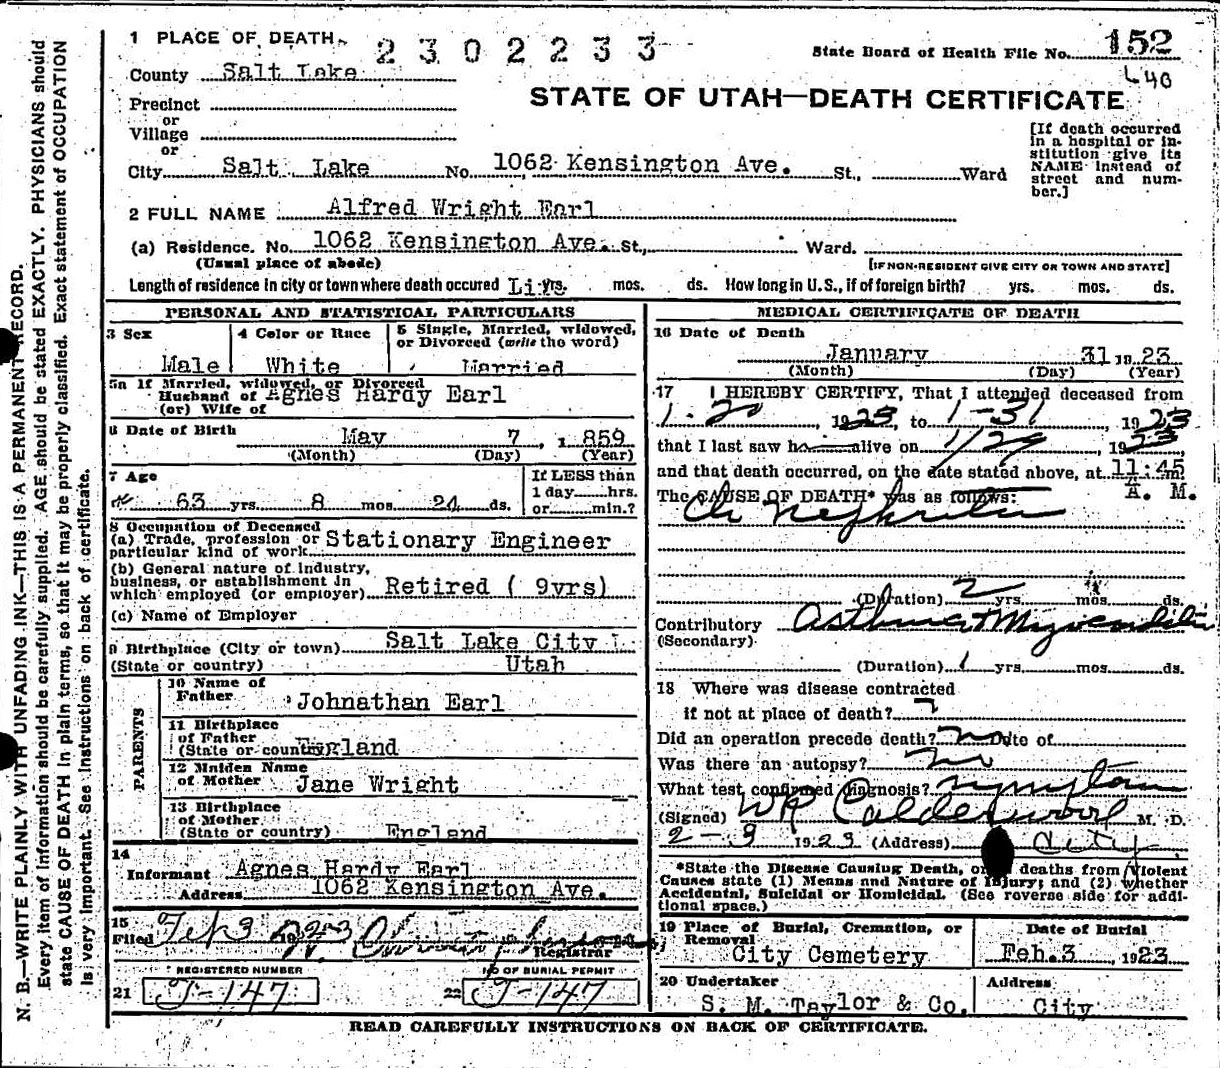 1 PLACE OF DEATH 2302233
State Board of Health File No. 152
L40
County Salt Lake
STATE OF UTAH—DEATH CERTIFICATE
Precinct
or
Village
or
City Salt Lake No. 1062 Kensington Ave. St., Ward
[If death occurred in a hospital or institution give its NAME instead of street and number.]
2 FULL NAME Alfred Wright Earl
(a) Residence. No. 1062 Kensington Ave. St., Ward.
(Usual place of abode) [IF NON-RESIDENT GIVE CITY OR TOWN AND STATE]
Length of residence in city or town where death occured Life yrs. mos. ds. How long in U.S., if of foreign birth? yrs. mos. ds.
PERSONAL AND STATISTICAL PARTICULARS
3 Sex 4 Color or Race 5 Single, Married, widowed, or Divorced (write the word)
Male White Married
5a If Married, widowed, or Divorced
Husband of Agnes Hardy Earl
(or) Wife of
6 Date of Birth May 7, 1859
(Month) (Day) (Year)
7 Age If LESS than
63 yrs. 8 mos. 24 ds. 1 day hrs.
or min.?
8 Occupation of Deceased
(a) Trade, profession or
particular kind of work Stationary Engineer
(b) General nature of industry,
business, or establishment in
which employed (or employer) Retired ( 9yrs)
(c) Name of Employer
9 Birthplace (City or town) Salt Lake City
(State or country) Utah
PARENTS
10 Name of
Father Johnathan Earl
11 Birthplace
of Father
(State or country) England
12 Maiden Name
of Mother Jane Wright
13 Birthplace
of Mother
(State or country) England
14
Informant Agnes Hardy Earl
Address 1062 Kensington Ave.
15
Filed Feb 3 1923
Registrar
REGISTERED NUMBER No OF BURIAL PERMIT
21 J-147 22 J-147
MEDICAL CERTIFICATE OF DEATH
16 Date of Death
January 31 1923
(Month) (Day) (Year)
17 I HEREBY CERTIFY, That I attended deceased from
1-20, 1923, to 1-31, 1923
that I last saw h alive on 1/29, 1923,
and that death occurred, on the date stated above, at 11:45 m.
A. M.
The CAUSE OF DEATH* was as follows:
Ch Nephritis
(Duration) 2 yrs. mos. ds.
Contributory Asthma + Myocarditis
(Secondary)
(Duration) 1 yrs. mos. ds.
18 Where was disease contracted
if not at place of death? ?
Did an operation precede death? no Date of
Was there an autopsy? no
What test confirmed diagnosis? symptom
(Signed) WR Calderwood M. D.
2-3 1923 (Address) City
*State the Disease Causing Death, or deaths from Violent
Causes state (1) Means and Nature of Injury; and (2) whether
Accidental, Suicidal or Homicidal. (See reverse side for addi-
tional space.)
19 Place of Burial, Cremation, or Removal Date of Burial
City Cemetery Feb.3 1923
20 Undertaker Address
S. M. Taylor & Co. City
READ CAREFULLY INSTRUCTIONS ON BACK OF CERTIFICATE.
N. B.—WRITE PLAINLY WITH UNFADING INK—THIS IS A PERMANENT RECORD.
Every item of information should be carefully supplied. AGE should be stated EXACTLY. PHYSICIANS should
state CAUSE OF DEATH in plain terms, so that it may be properly classified. Exact statement of OCCUPATION
is very important. See instructions on back of certificate.